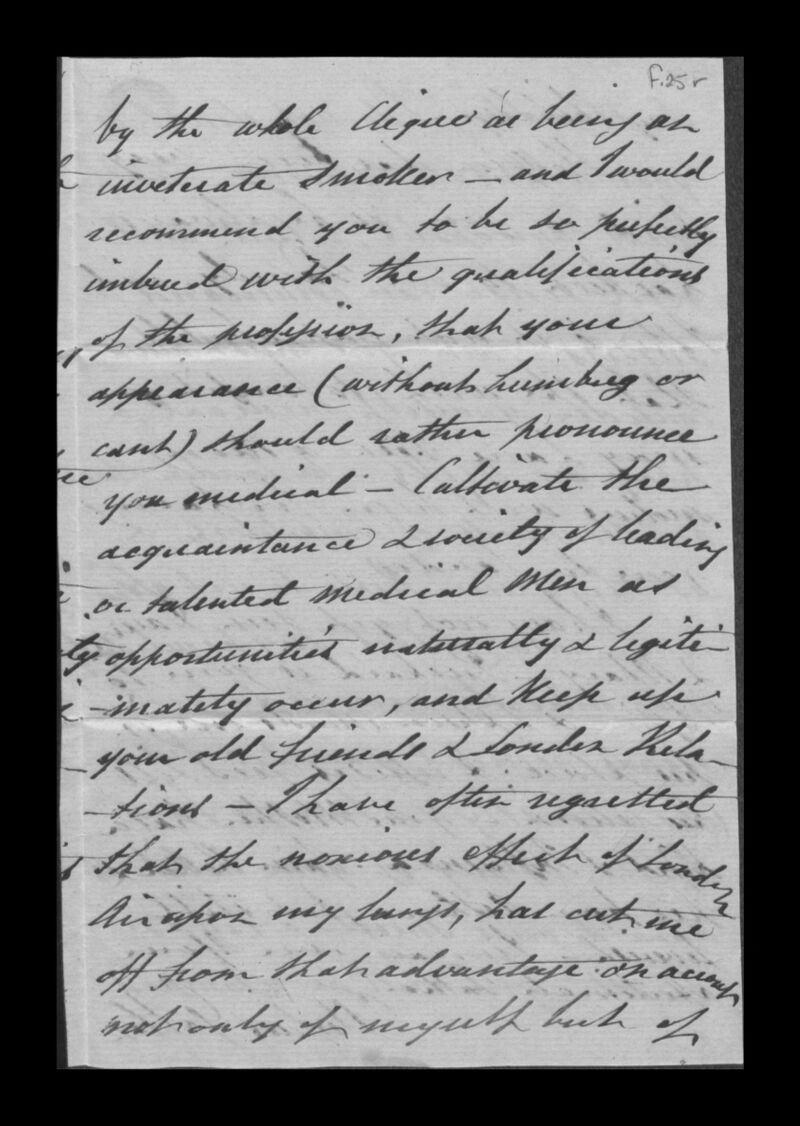 F.25r
by the whole Clique as being an
inveterate Smoker – and I would
recommend you to be so perfectly
imbued with the qualifications
of the profession, that your
appearance (without humbug or
cant) should rather pronounce
you medical – Cultivate the
acquaintance & society of leading
or talented medical Men as
opportunities naturally & legiti-
-mately occur, and Keep up
your old friends & London Rela-
-tions – I have often regretted
that the noxious effect of London
Air upon my lungs, has cut me
off from that advantage on account
not only of myself but of